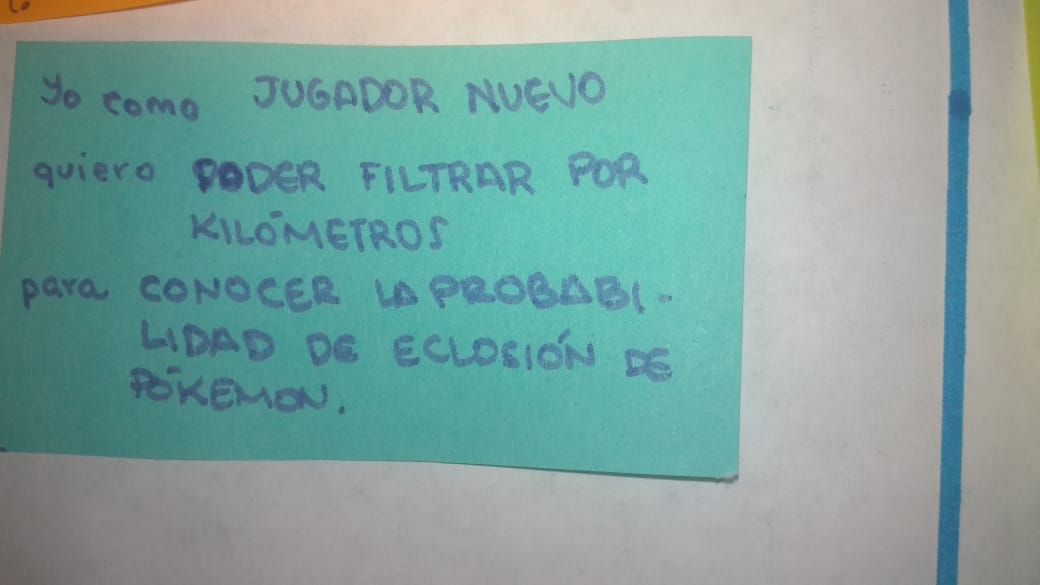 Yo como JUGADOR NUEVO
quiero PODER FILTRAR POR
KILÓMETROS
para CONOCER LA PROBABI-
LIDAD DE ECLOSIÓN DE
PÓKEMON.